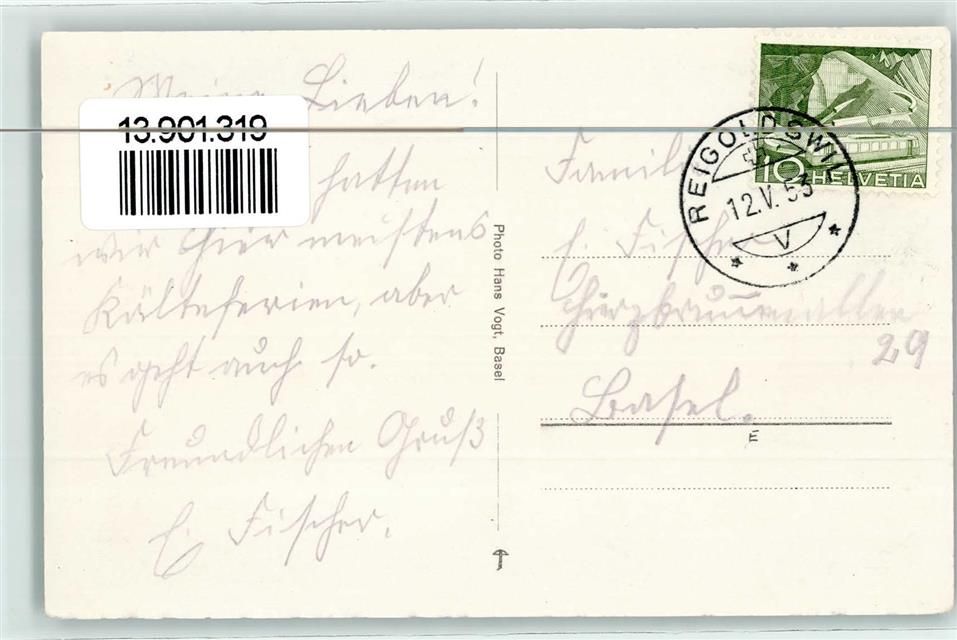 Meine Lieben!
13.901.319
hatten
wir hier meistens
Kälteferien, aber
es geht auch so.
Freundlichen Gruß
E. Fischer.
Photo Hans Vogt, Basel
HELVETIA
10
REIGOLDSWIL
12.V.53
V
Familie
E. Fischer
Hirzbrunnenallee
29
Basel.